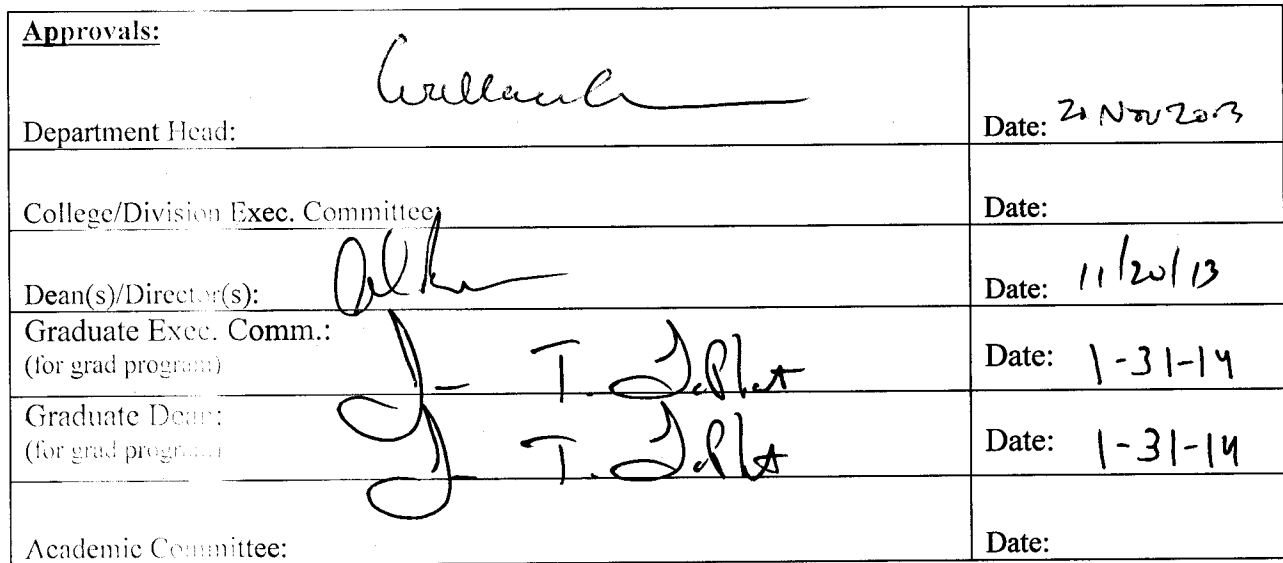 Approvals:
Department Head:
Date: 20 Nov 2013
College/Division Exec. Committee:
Date:
Dean(s)/Director(s):
Date: 11/20/13
Graduate Exec. Comm.:
(for grad program)
T.
Date: 1-31-14
Graduate Dean:
(for grad program)
T.
Date: 1-31-14
Academic Committee:
Date: